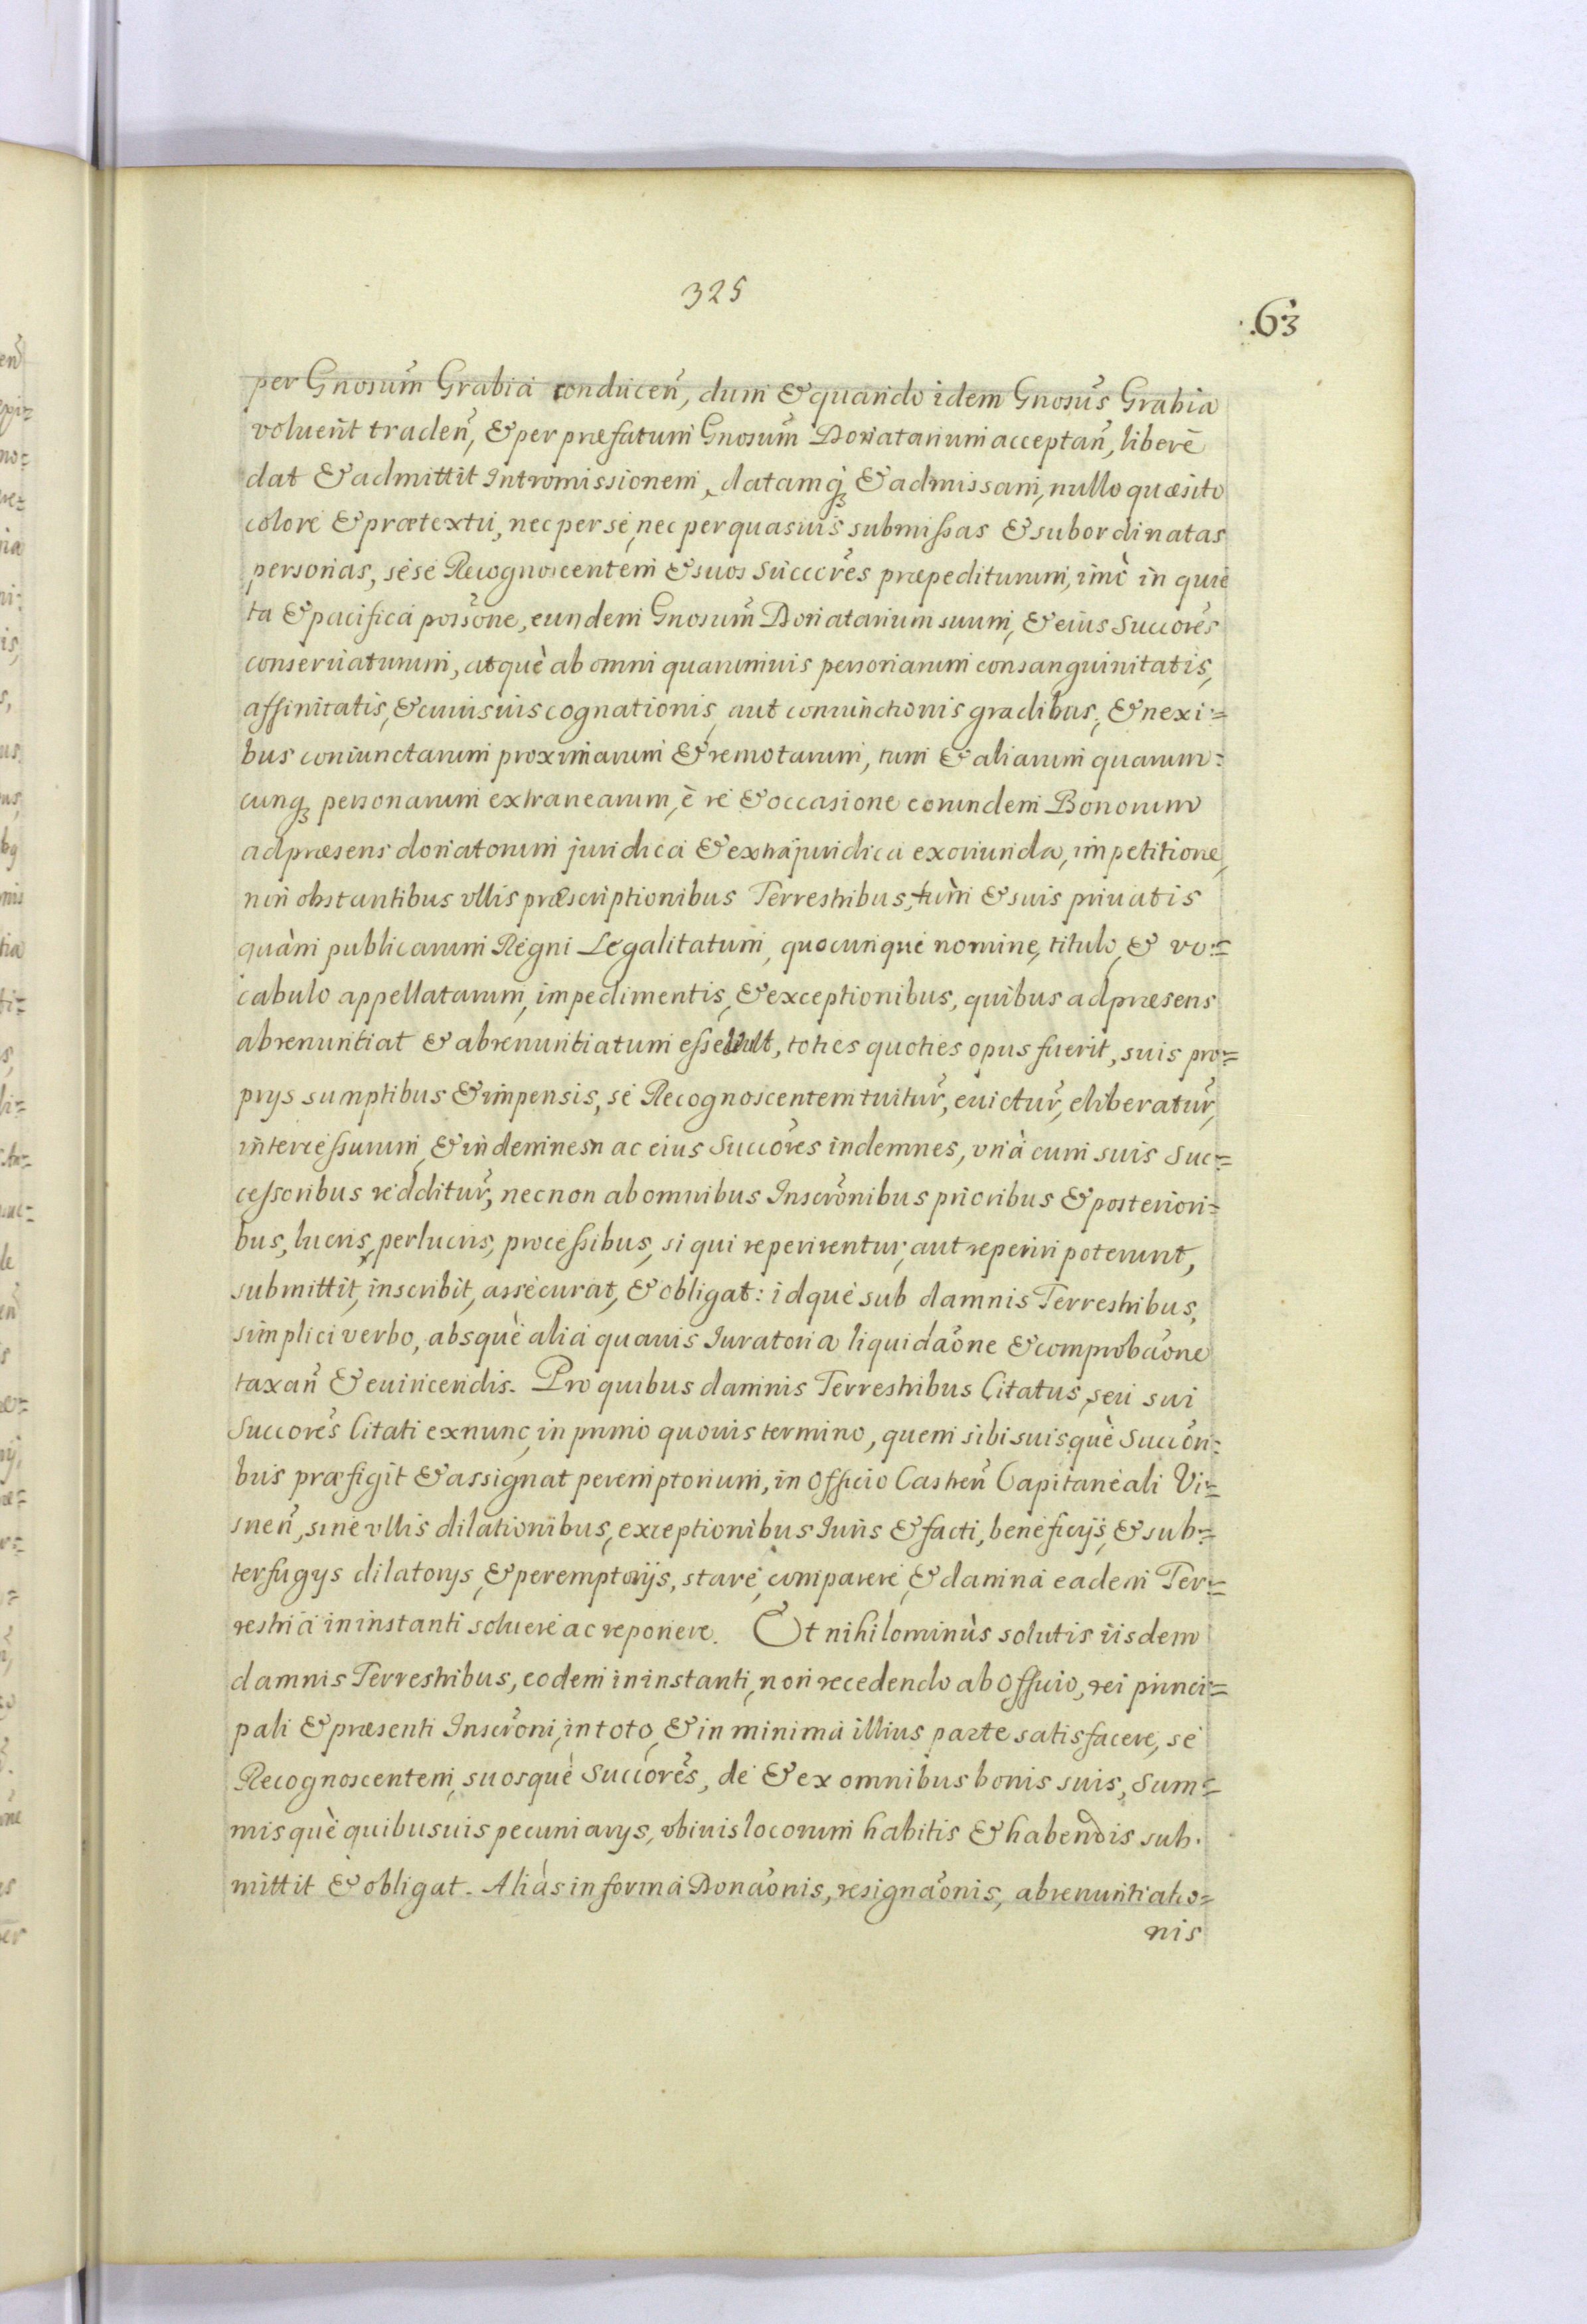 325
63
per Gnosum̃ Grabia conducen̄, dum & quando idem Gnosus̃ Grabia
voluerit traden̄, & per præfatum Gnosum̃ Donatarium acceptan̄, liberè
dat & admittit Intromissionem, datamq; & admissam, nullo quæsito
colore & prætextu, nec per se, nec per quasuis submissas & subordinatas
personas, sese Recognoscentem & suos Succores̃ præpediturum, imò in quie
ta & pacifica possõne, eundem Gnosum̃ Donatarium suum, & eius Succores̃
conseruaturum, atquè ab omni quarumuis personarum consanguinitatis,
affinitatis, & cuiusuis cognationis, aut coniunctionis gradibus, & nexi=
bus coniunctarum proximarum & remotarum, tum & aliarum quarum=
cunq; personarum extranearum, è re & occasione eorundem Bonorum
ad præsens donatorum juridica & extrajuridica exoriunda, impetitione,
non obstantibus vllis præscriptionibus Terrestribus, tùm & suis priuatis
quàm publicarum Regni Legalitatum, quocunque nomine, titulo, & vo=
cabulo appellatarum, impedimentis, & exceptionibus, quibus ad præsens
abrenuntiat & abrenuntiatum esse vult, toties quoties opus fuerit, suis pro=
prys sumptibus & impensis, se Recognoscentem tuitur̃, euictur̃, eliberatur̃,
intercessurum, & indemnem ac eius Succores̃ indemnes, vnà cum suis Suc=
cessoribus redditur̃, necnon ab omnibus Inscrõnibus prioribus & posteriori=
bus, lucris, perlucris, processibus, si qui reperirentur, aut reperiri poterunt,
submittit, inscribit, assecurat, & obligat: idque sub damnis Terrestribus,
simplici verbo, absquè alia quauis Iuratoria liquidaõne & comprobaõne
taxan̄ & euincendis. Pro quibus damnis Terrestribus Citatus, seu sui
Succores̃ Citati exnunc, in primo quouis termino, quem sibi suisquè Succori=
bus præfigit & assignat peremptorium, in Officio Castren̄ Capitaneali Vi=
snen̄, sine vllis dilationibus, exceptionibus Iuris & facti, beneficijs, & sub=
terfugys dilatorys, & peremptorijs, stare, comparere, & damna eadem Ter=
restria in instanti soluere ac reponere. Et nihilominùs solutis iisdem
damnis Terrestribus, eodem in instanti, non recedendo ab Officio, rei princi=
pali & præsenti Inscrõni, in toto, & in minima illius parte satisfacere, se
Recognoscentem, suosquè Succores̃, de & ex omnibus bonis suis, Sum=
misquè quibusuis pecuniarys, vbiuis locorum habitis & habendis sub.
mittit & obligat. Aliàs in forma Donaõnis, resignaõnis, abrenuntiatio=
nis